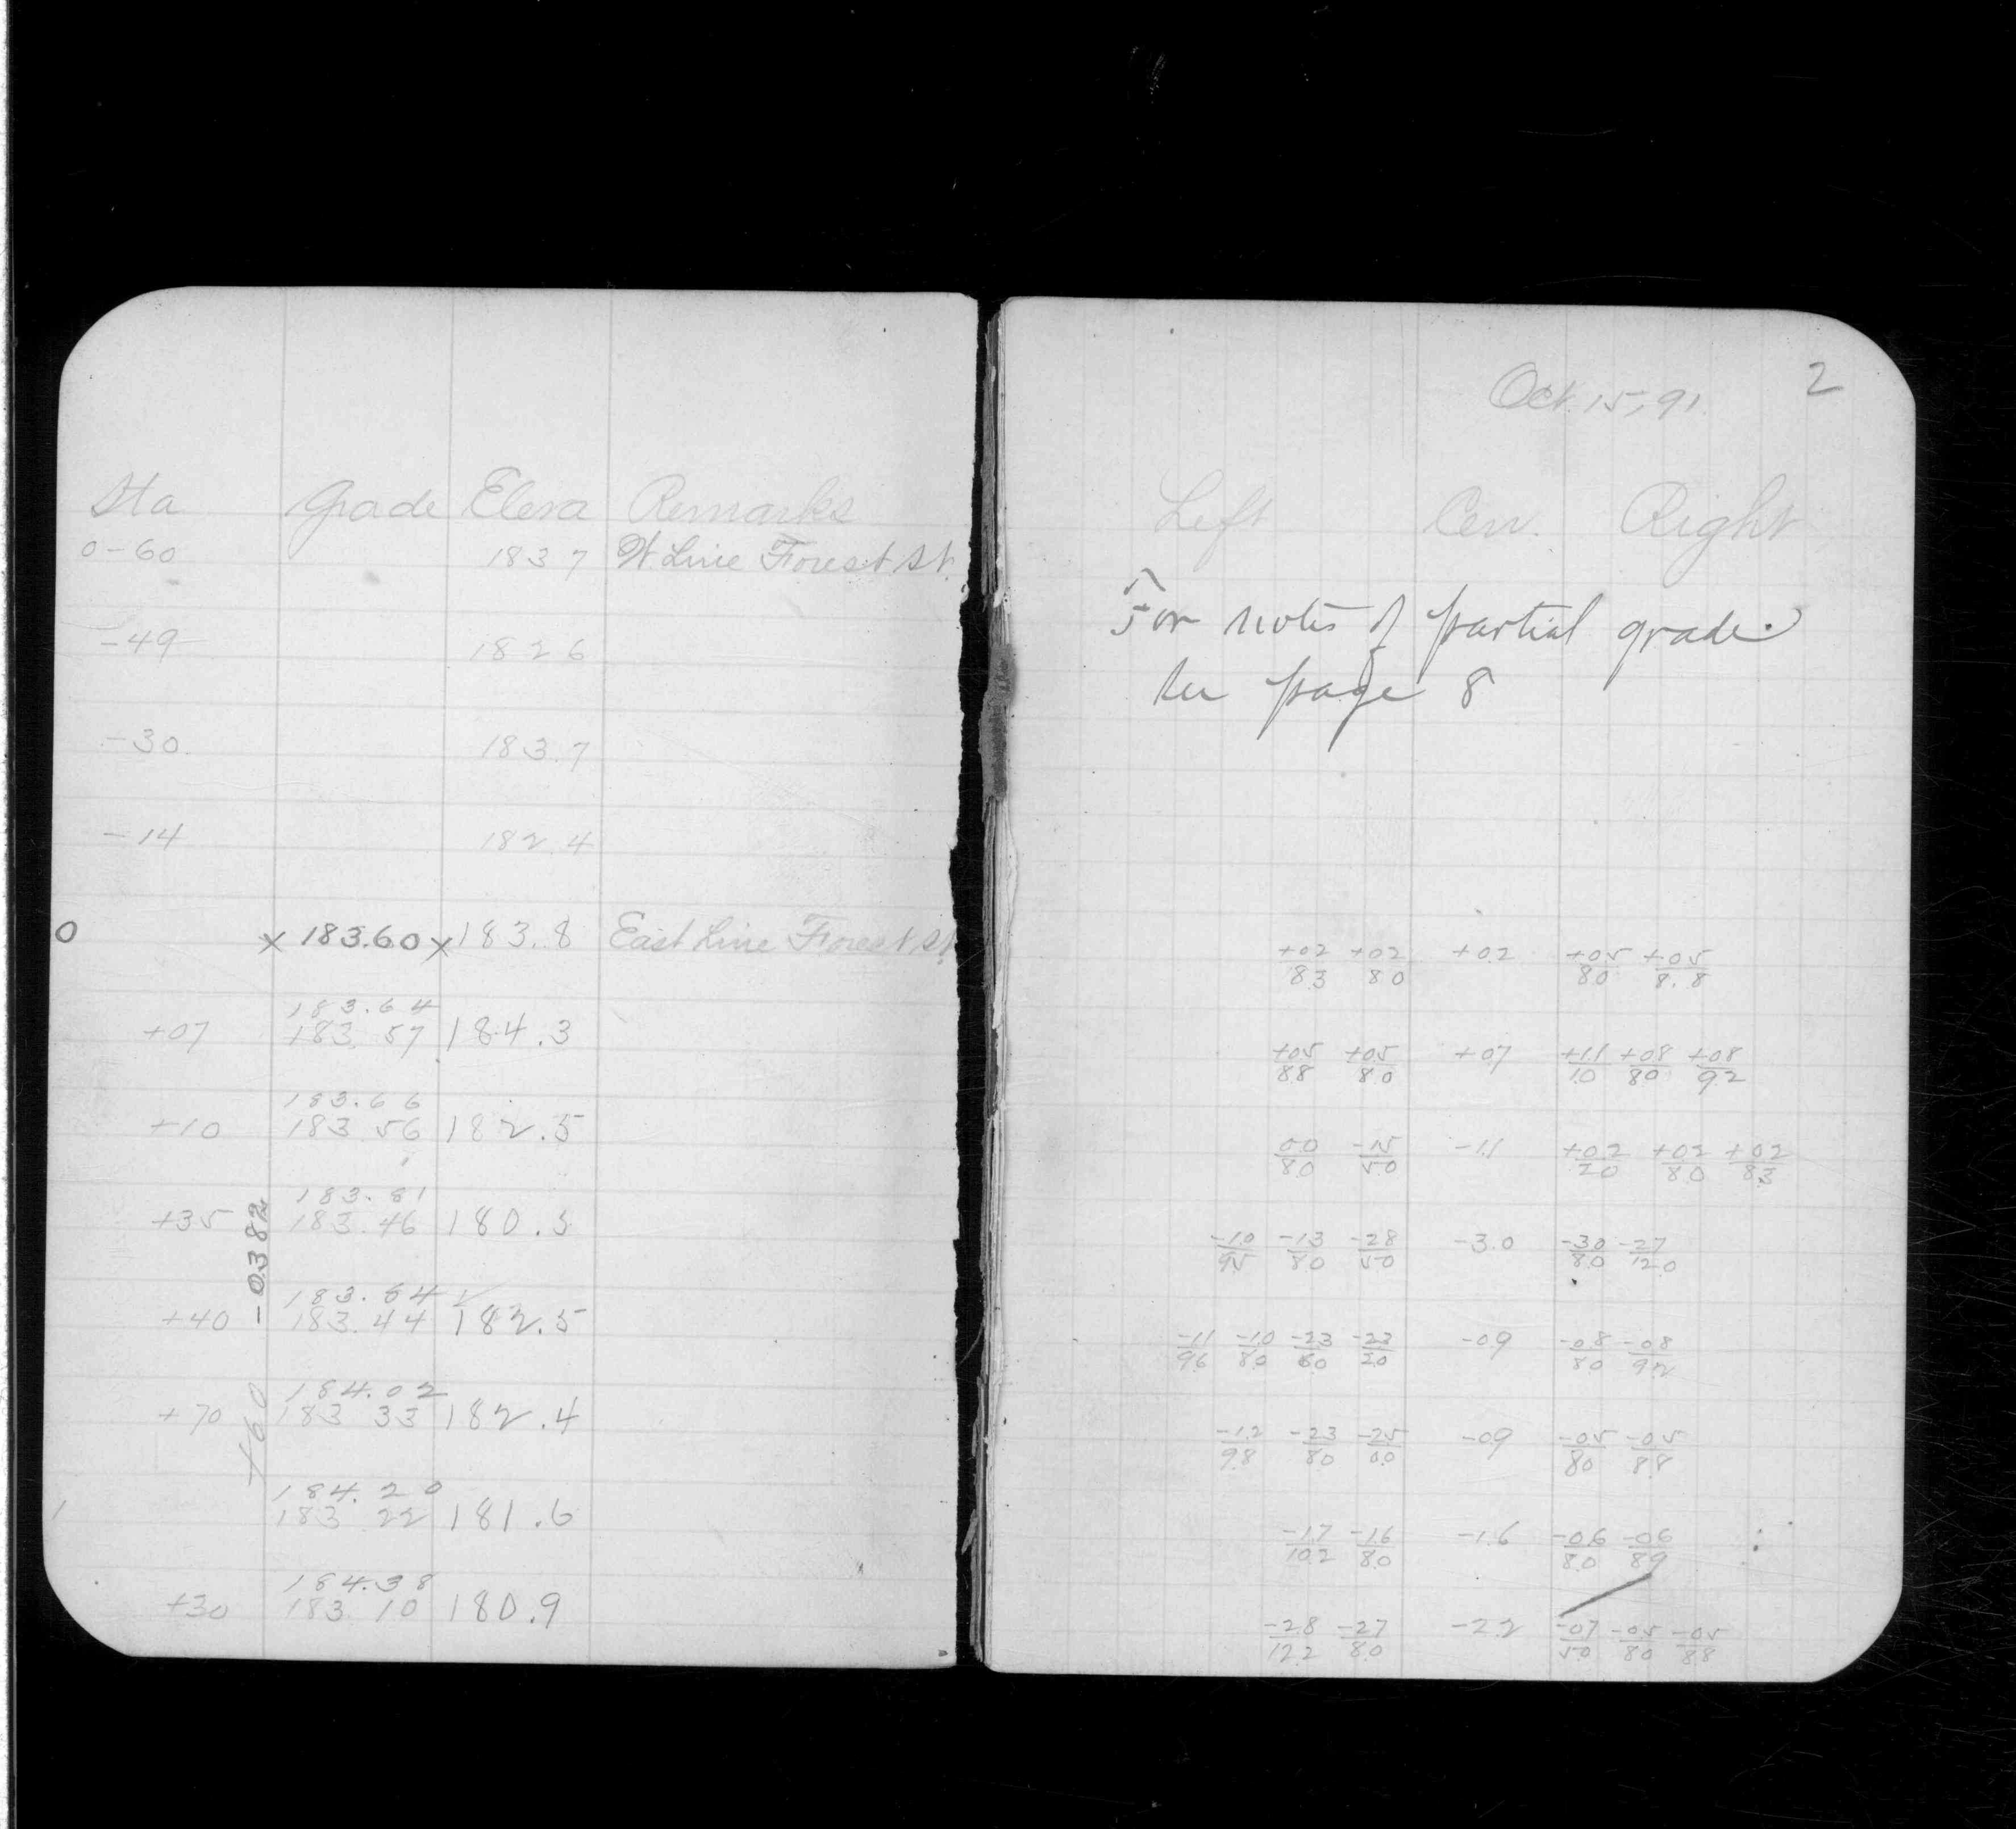 Sta Grade Eleva Remarks
0-60 183 7 W Line Forest St.
-49 182 6
-30 183.7
-14 182.4
0 x 183.60 x 183.8 East Line Forest St.
183.64
+07 183 57 184.3
183.66
+10 183 56 182.5
183.81
+35 183.46 180.5
-0382
183.84 ✓
+40 183.44 182.5
184.02
+70 183 33 182.4
+60
184.20
1 183 22 181.6
184.38
+30 183 10 180.9
2
Oct. 15, 91
Left Cen. Right
For notes of partial grade
see page 8
+02/83 +02/80 +02 +05/80 +05/8.8
+05/88 +05/80 +07 +11/10 +08/80 +08/92
00/80 -15/50 -11 +02/20 +02/80 +02/83
-10/95 -13/80 -28/50 -3.0 -30/80 -27/120
-11/96 -10/80 -23/60 -23/20 -09 -08/80 -08/92
-12/98 -23/80 -25/00 -09 -05/80 -05/88
-17/102 -16/80 -1.6 -06/80 -06/89
-28/122 -27/80 -22 -07/50 -05/80 -05/88